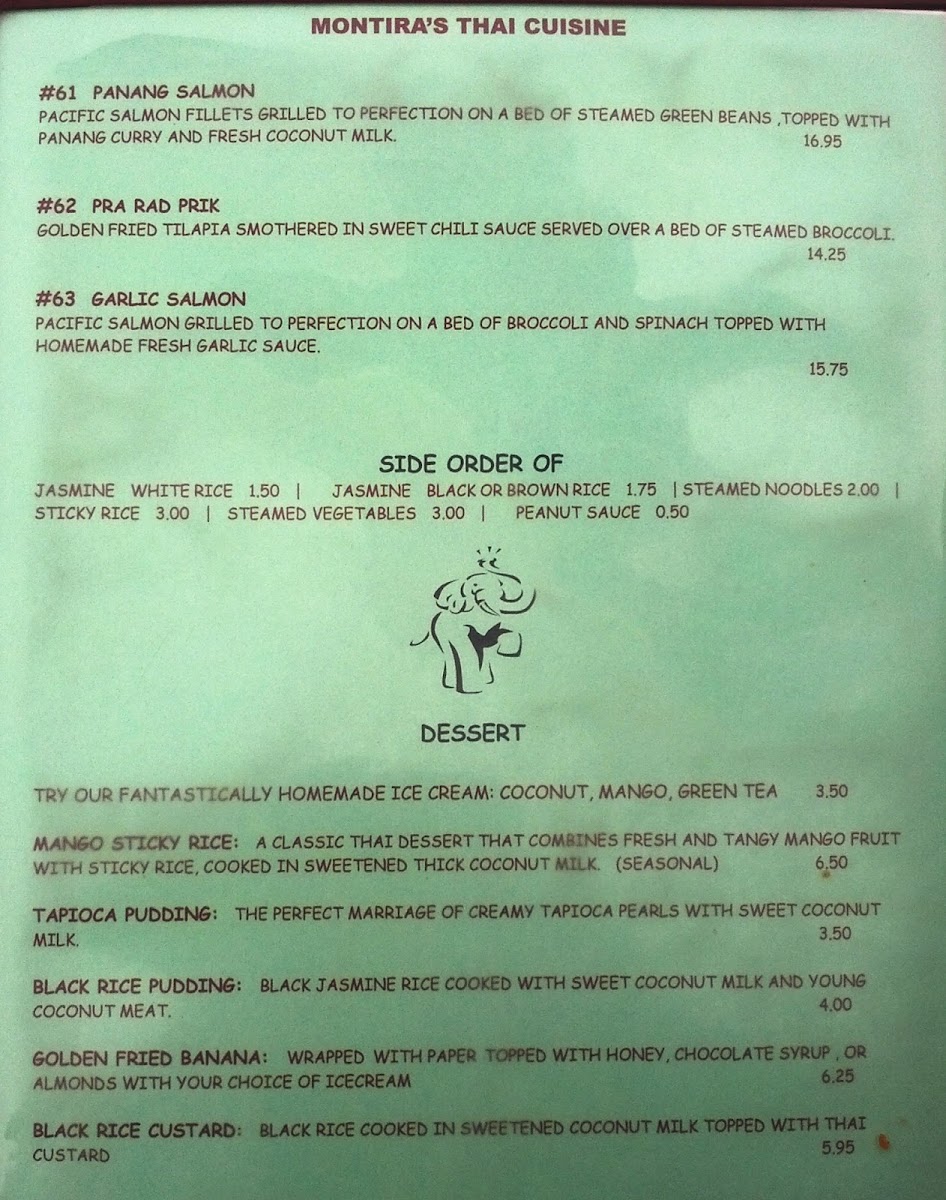 MONTIRA'S THAI CUISINE
#61 PANANG SALMON
PACIFIC SALMON FILLETS GRILLED TO PERFECTION ON A BED OF STEAMED GREEN BEANS ,TOPPED WITH
PANANG CURRY AND FRESH COCONUT MILK. 16.95
#62 PRA RAD PRIK
GOLDEN FRIED TILAPIA SMOTHERED IN SWEET CHILI SAUCE SERVED OVER A BED OF STEAMED BROCCOLI.
14.25
#63 GARLIC SALMON
PACIFIC SALMON GRILLED TO PERFECTION ON A BED OF BROCCOLI AND SPINACH TOPPED WITH
HOMEMADE FRESH GARLIC SAUCE.
15.75
SIDE ORDER OF
JASMINE WHITE RICE 1.50 | JASMINE BLACK OR BROWN RICE 1.75 | STEAMED NOODLES 2.00 |
STICKY RICE 3.00 | STEAMED VEGETABLES 3.00 | PEANUT SAUCE 0.50
DESSERT
TRY OUR FANTASTICALLY HOMEMADE ICE CREAM: COCONUT, MANGO, GREEN TEA 3.50
MANGO STICKY RICE: A CLASSIC THAI DESSERT THAT COMBINES FRESH AND TANGY MANGO FRUIT
WITH STICKY RICE, COOKED IN SWEETENED THICK COCONUT MILK. (SEASONAL) 6.50
TAPIOCA PUDDING: THE PERFECT MARRIAGE OF CREAMY TAPIOCA PEARLS WITH SWEET COCONUT
MILK. 3.50
BLACK RICE PUDDING: BLACK JASMINE RICE COOKED WITH SWEET COCONUT MILK AND YOUNG
COCONUT MEAT. 4.00
GOLDEN FRIED BANANA: WRAPPED WITH PAPER TOPPED WITH HONEY, CHOCOLATE SYRUP , OR
ALMONDS WITH YOUR CHOICE OF ICECREAM 6.25
BLACK RICE CUSTARD: BLACK RICE COOKED IN SWEETENED COCONUT MILK TOPPED WITH THAI
CUSTARD 5.95